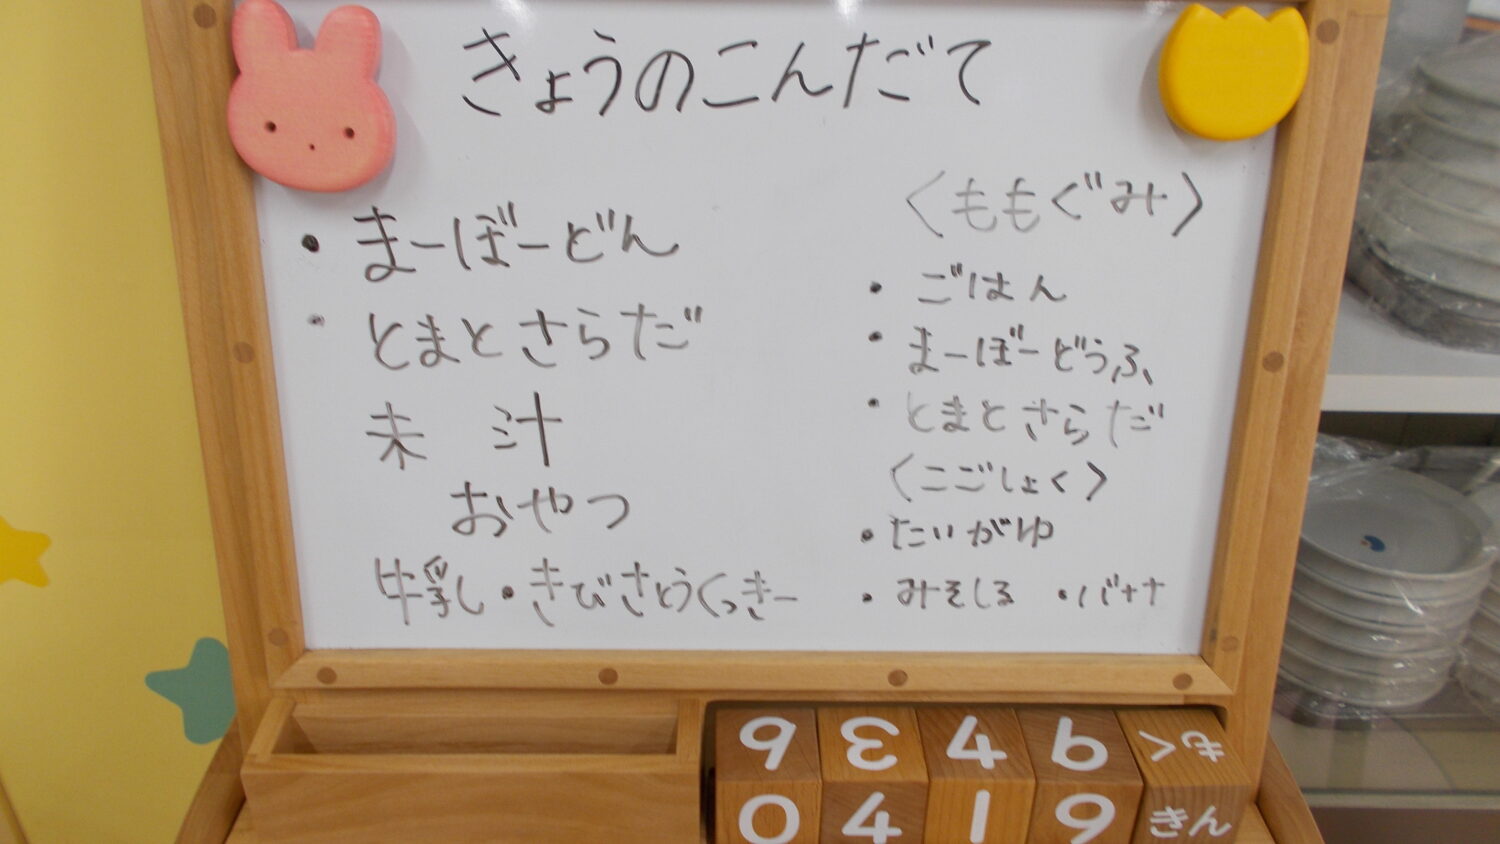 きょうのこんだて
・まーぼーどん
・とまとさらだ
未 汁
おやつ
牛乳・きびさとうくっきー
〈ももぐみ〉
・ごはん
・まーぼーどうふ
・とまとさらだ
〈こごしょく〉
・たいがゆ
・みそしる ・バナナ
9 3 4 6 もく
0 4 1 9 きん